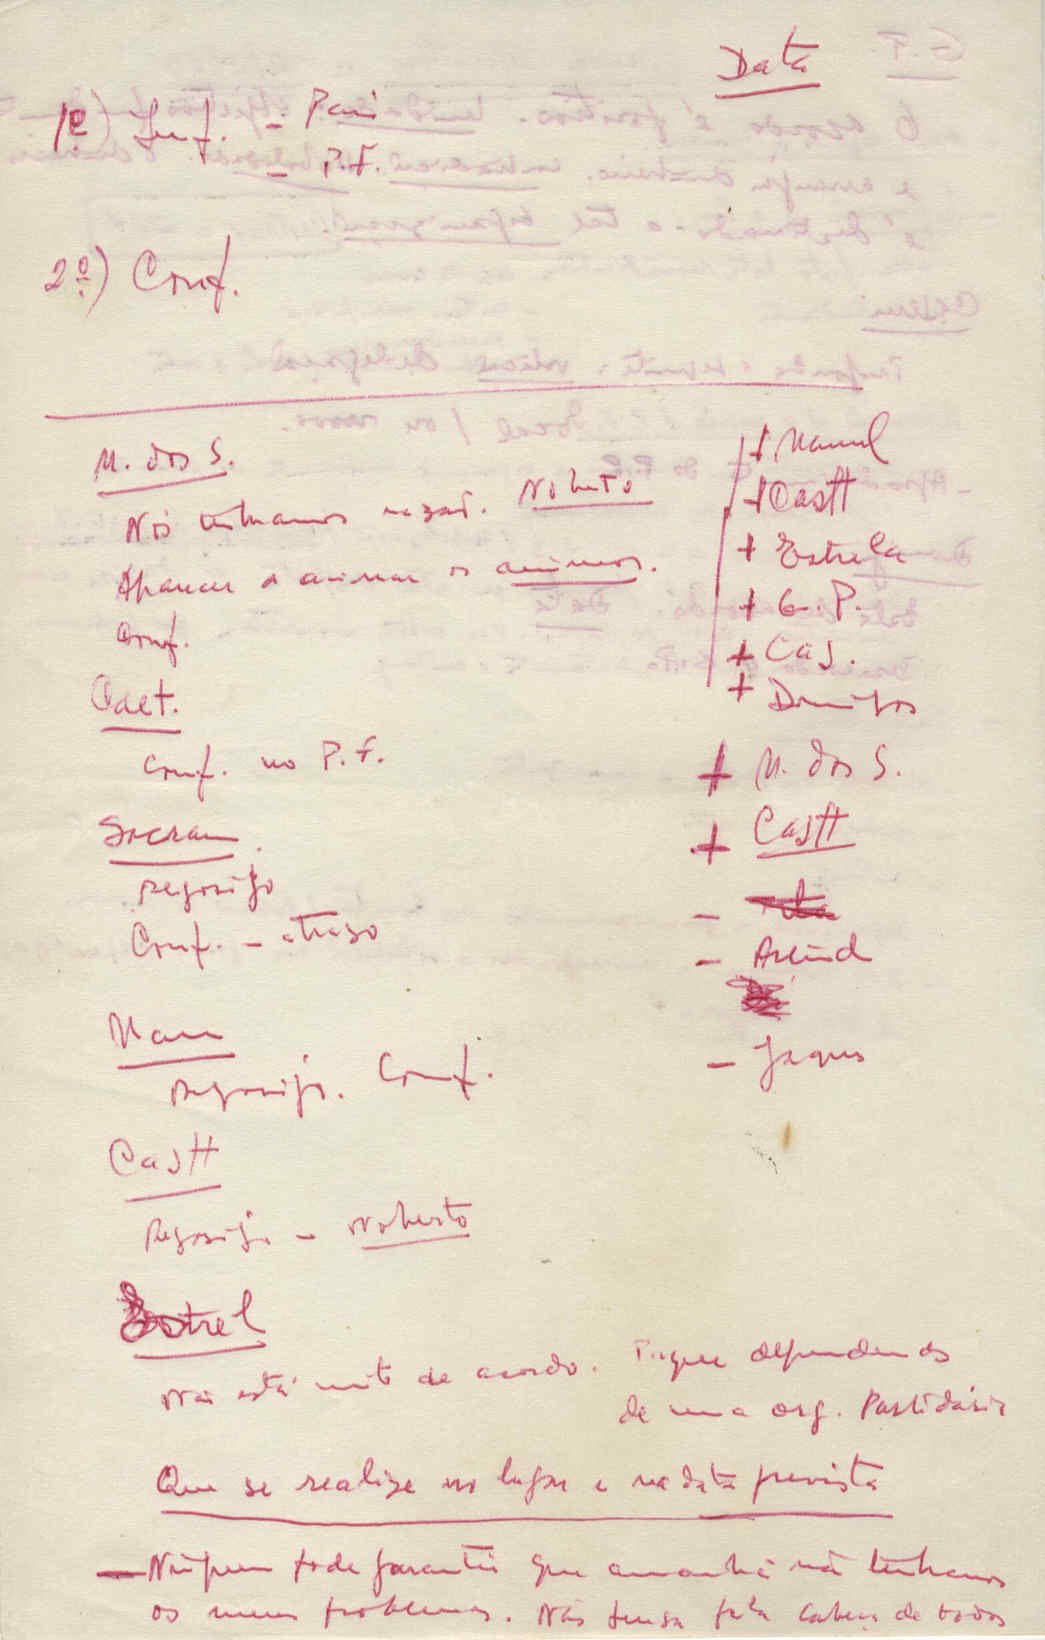 Data
1º) Inf. - País
- P.F.
2º) Conf.
M. dos S.
Nós tenhamos Noberto
a animar os animos.
Conf.
Caet.
Conf. no P.F.
Socram
Regosijo
Conf. - atraso
Man
Regosijo. Conf.
Castt
Regosijo - Noberto
Estrel
Não está mto de acordo. Porque dependemos
de uma org. Partidária
Que se realize no lugar e na data prevista
- Ninguem pode garantir que amanhã não tenhamos
os mesmos problemas. Não pela cabeça de todos
+ Manuel
+ Castt
+ Estrela
+ G.P.
+ Cas.
+ Domingos
+ M. dos S.
+ Castt
-
- Arlind
- Jaques